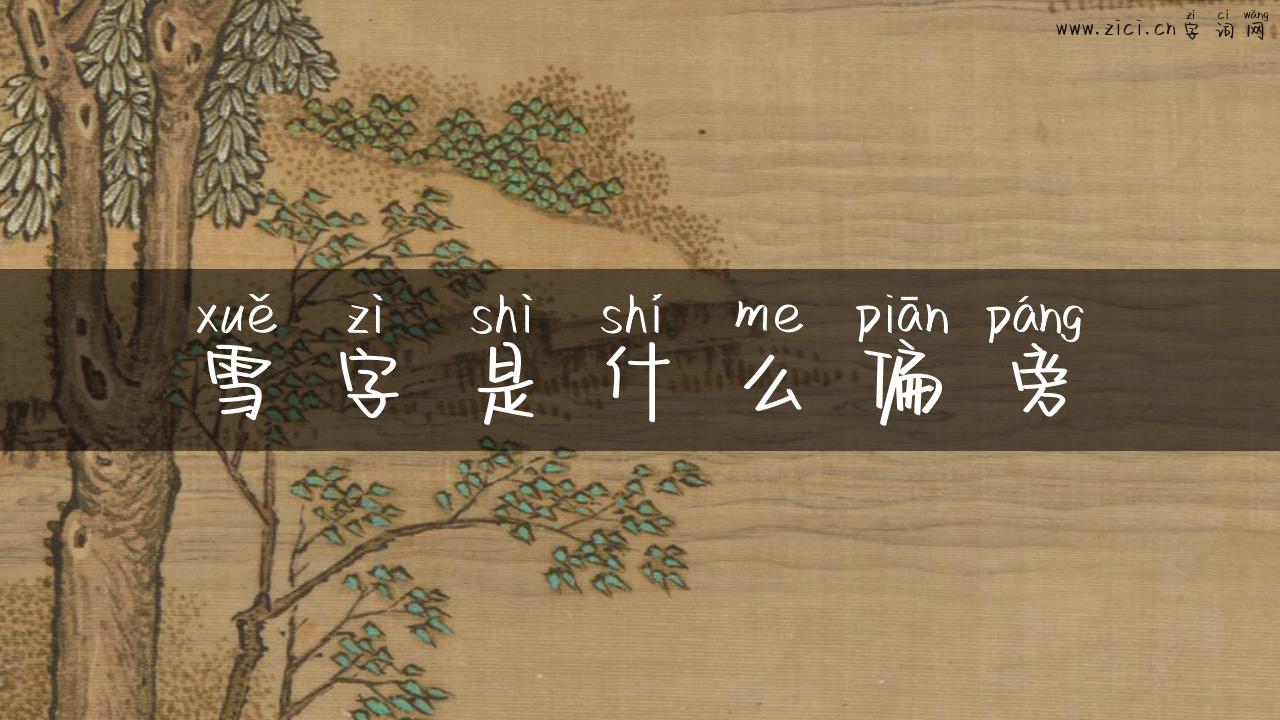 zì cí wǎng
www.zici.cn字词网
xuě zì shì shí me piān páng
雪字是什么偏旁